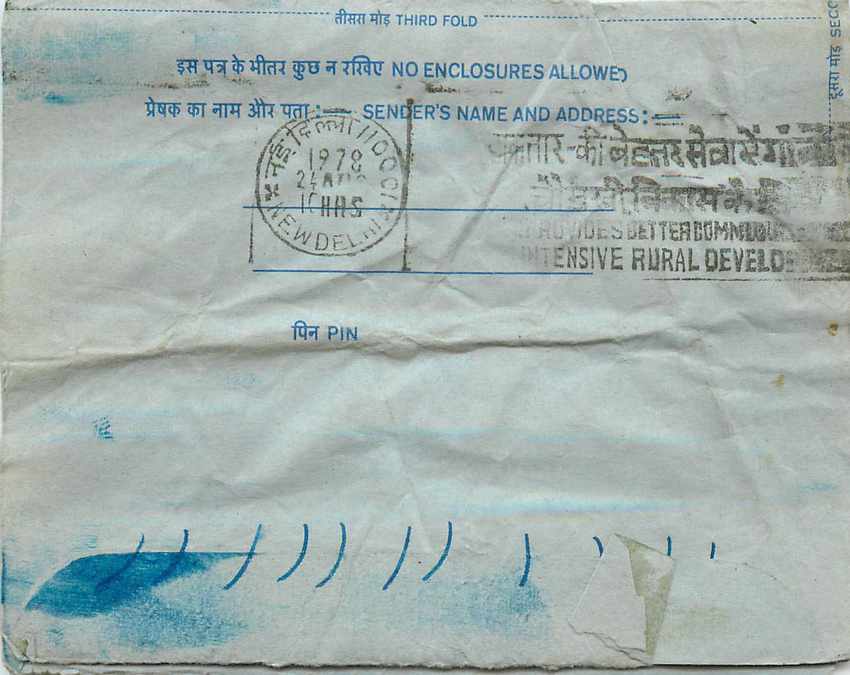 तीसरा मोड़ THIRD FOLD
दूसरा मोड़ SECO
इस पत्र के भीतर कुछ न रखिए NO ENCLOSURES ALLOWED
प्रेषक का नाम और पता :— SENDER'S NAME AND ADDRESS:—
नई दिल्ली 110001
1978
24
10 HRS
NEW DELHI
की बेहतर सेवा से
चौमुखी विकास के
PROVIDES BETTER
INTENSIVE RURAL
पिन PIN